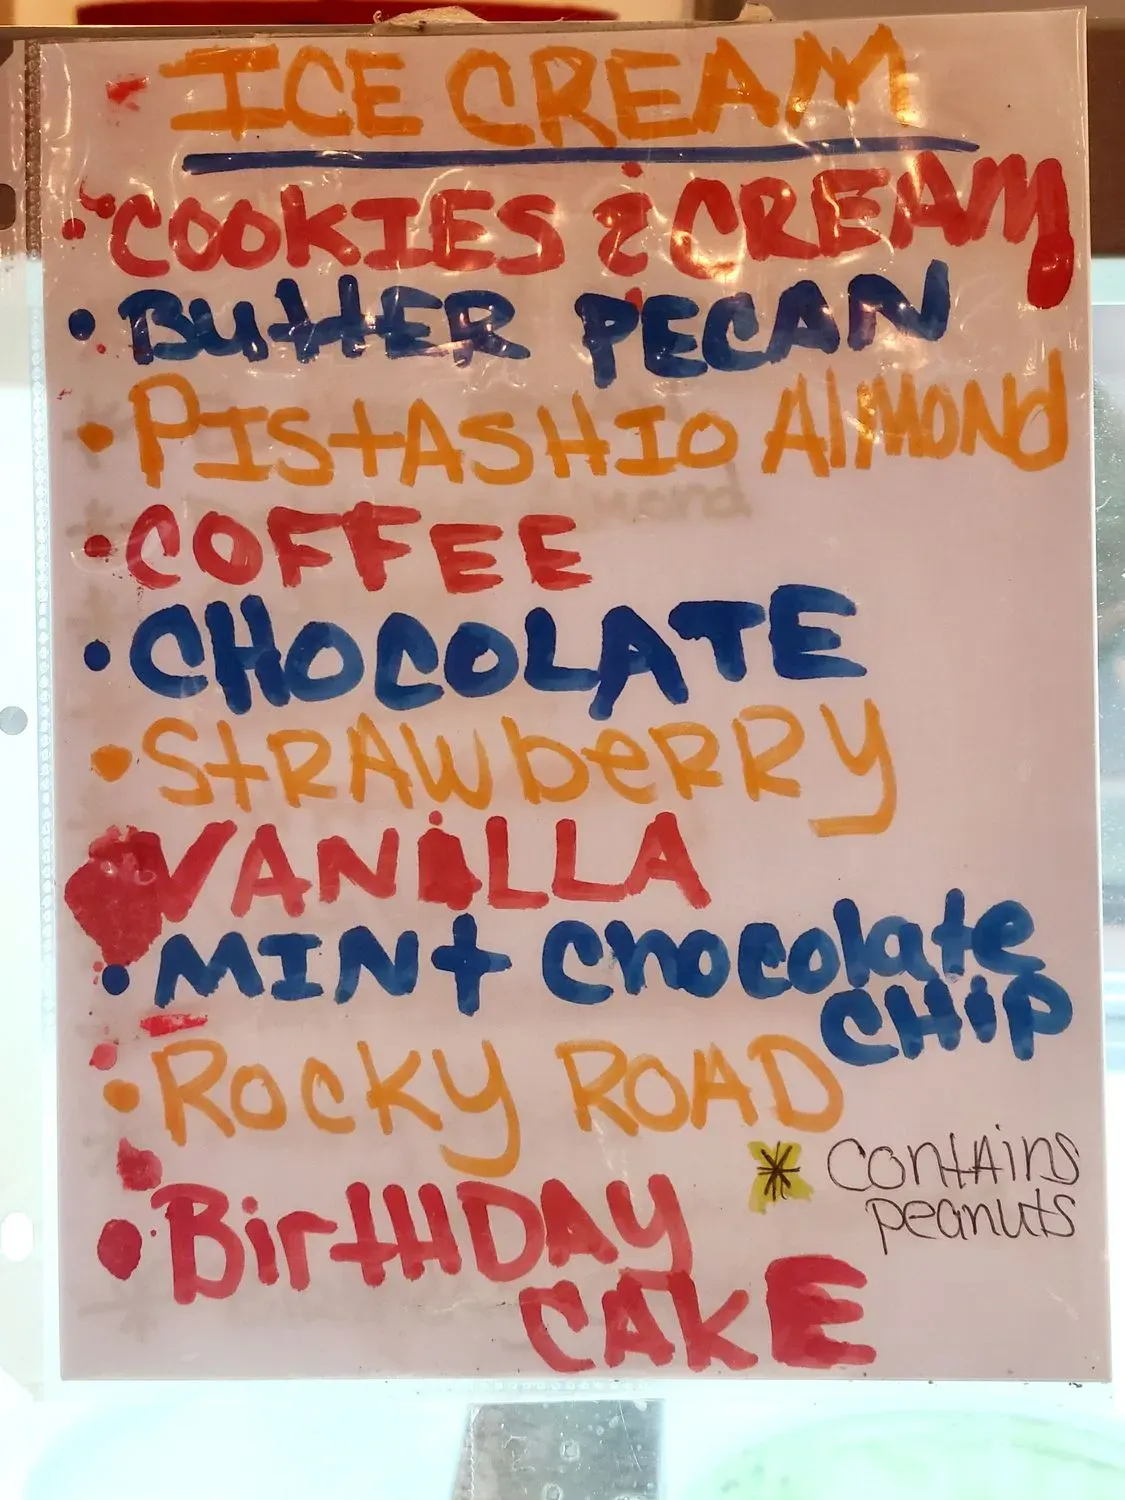 ICE CREAM
• COOKIES & CREAM
• BUttER PECAN
• PIStASHIO AlMONd
• COFFEE
• CHOCOLATE
• StRAWbeRRy
VANiLLA
• MINt Chocolate
CHiP
• ROCKy ROAD
* CONtAins
peanuts
• BirtHDAy
CAKE